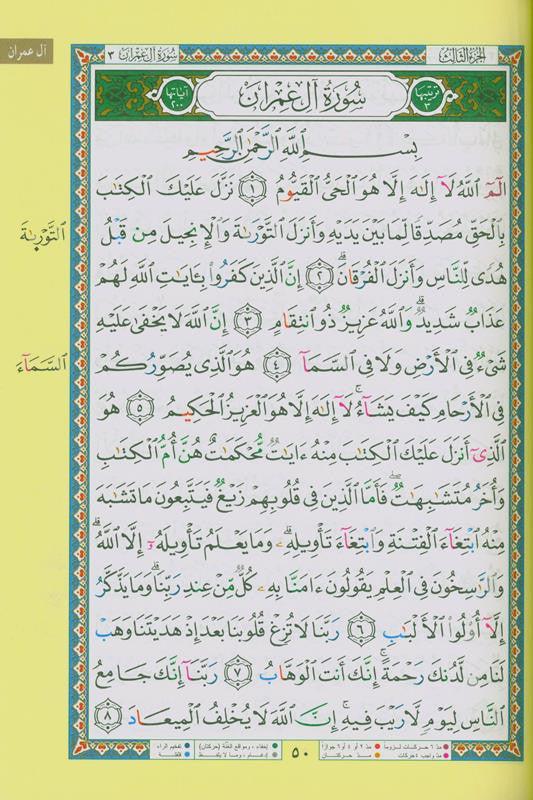 الجزء الثالث
سورة آل عمران ٣
آل عمران
ترتيبها ٣
سُورَةُ آلِ عِمْرَانَ
آياتها ٢٠٠
بِسْمِ اللَّهِ الرَّحْمَٰنِ الرَّحِيمِ
الٓمٓ اللَّهُ لَآ إِلَٰهَ إِلَّا هُوَ الْحَيُّ الْقَيُّومُ ١ نَزَّلَ عَلَيْكَ الْكِتَٰبَ
بِالْحَقِّ مُصَدِّقًا لِّمَا بَيْنَ يَدَيْهِ وَأَنزَلَ التَّوْرَىٰةَ وَالْإِنجِيلَ مِن قَبْلُ
التَّوْرَىٰةَ
هُدًى لِّلنَّاسِ وَأَنزَلَ الْفُرْقَانَ ۗ ٢ إِنَّ الَّذِينَ كَفَرُوا بِـَٔايَٰتِ اللَّهِ لَهُمْ
عَذَابٌ شَدِيدٌ ۗ وَاللَّهُ عَزِيزٌ ذُو انتِقَامٍ ٣ إِنَّ اللَّهَ لَا يَخْفَىٰ عَلَيْهِ
شَىْءٌ فِى الْأَرْضِ وَلَا فِى السَّمَآ ٤ هُوَ الَّذِى يُصَوِّرُكُمْ
السَّمَآءَ
فِى الْأَرْحَامِ كَيْفَ يَشَآءُ ۚ لَآ إِلَٰهَ إِلَّا هُوَ الْعَزِيزُ الْحَكِيمُ ٥ هُوَ
الَّذِىٓ أَنزَلَ عَلَيْكَ الْكِتَٰبَ مِنْهُ ءَايَٰتٌ مُّحْكَمَٰتٌ هُنَّ أُمُّ الْكِتَٰبِ
وَأُخَرُ مُتَشَٰبِهَٰتٌ ۖ فَأَمَّا الَّذِينَ فِى قُلُوبِهِمْ زَيْغٌ فَيَتَّبِعُونَ مَا تَشَٰبَهَ
مِنْهُ ابْتِغَآءَ الْفِتْنَةِ وَابْتِغَآءَ تَأْوِيلِهِۦ ۗ وَمَا يَعْلَمُ تَأْوِيلَهُۥٓ إِلَّا اللَّهُ ۗ
وَالرَّٰسِخُونَ فِى الْعِلْمِ يَقُولُونَ ءَامَنَّا بِهِۦ كُلٌّ مِّنْ عِندِ رَبِّنَا ۗ وَمَا يَذَّكَّرُ
إِلَّآ أُولُوا الْأَلْبَٰبِ ٦ رَبَّنَا لَا تُزِغْ قُلُوبَنَا بَعْدَ إِذْ هَدَيْتَنَا وَهَبْ
لَنَا مِن لَّدُنكَ رَحْمَةً ۚ إِنَّكَ أَنتَ الْوَهَّابُ ٧ رَبَّنَآ إِنَّكَ جَامِعُ
النَّاسِ لِيَوْمٍ لَّا رَيْبَ فِيهِ ۚ إِنَّ اللَّهَ لَا يُخْلِفُ الْمِيعَادَ ٨
مدّ ٦ حركات لزوماً مدّ ٢ أو ٤ أو ٦ جوازاً
مدّ واجب ٤ حركات مدّ حركتان
٥٠
إخفاء، ومواقع الغنّة (حركتان) تفخيم الراء
إدغام، وما لا يلفظ قلقلة